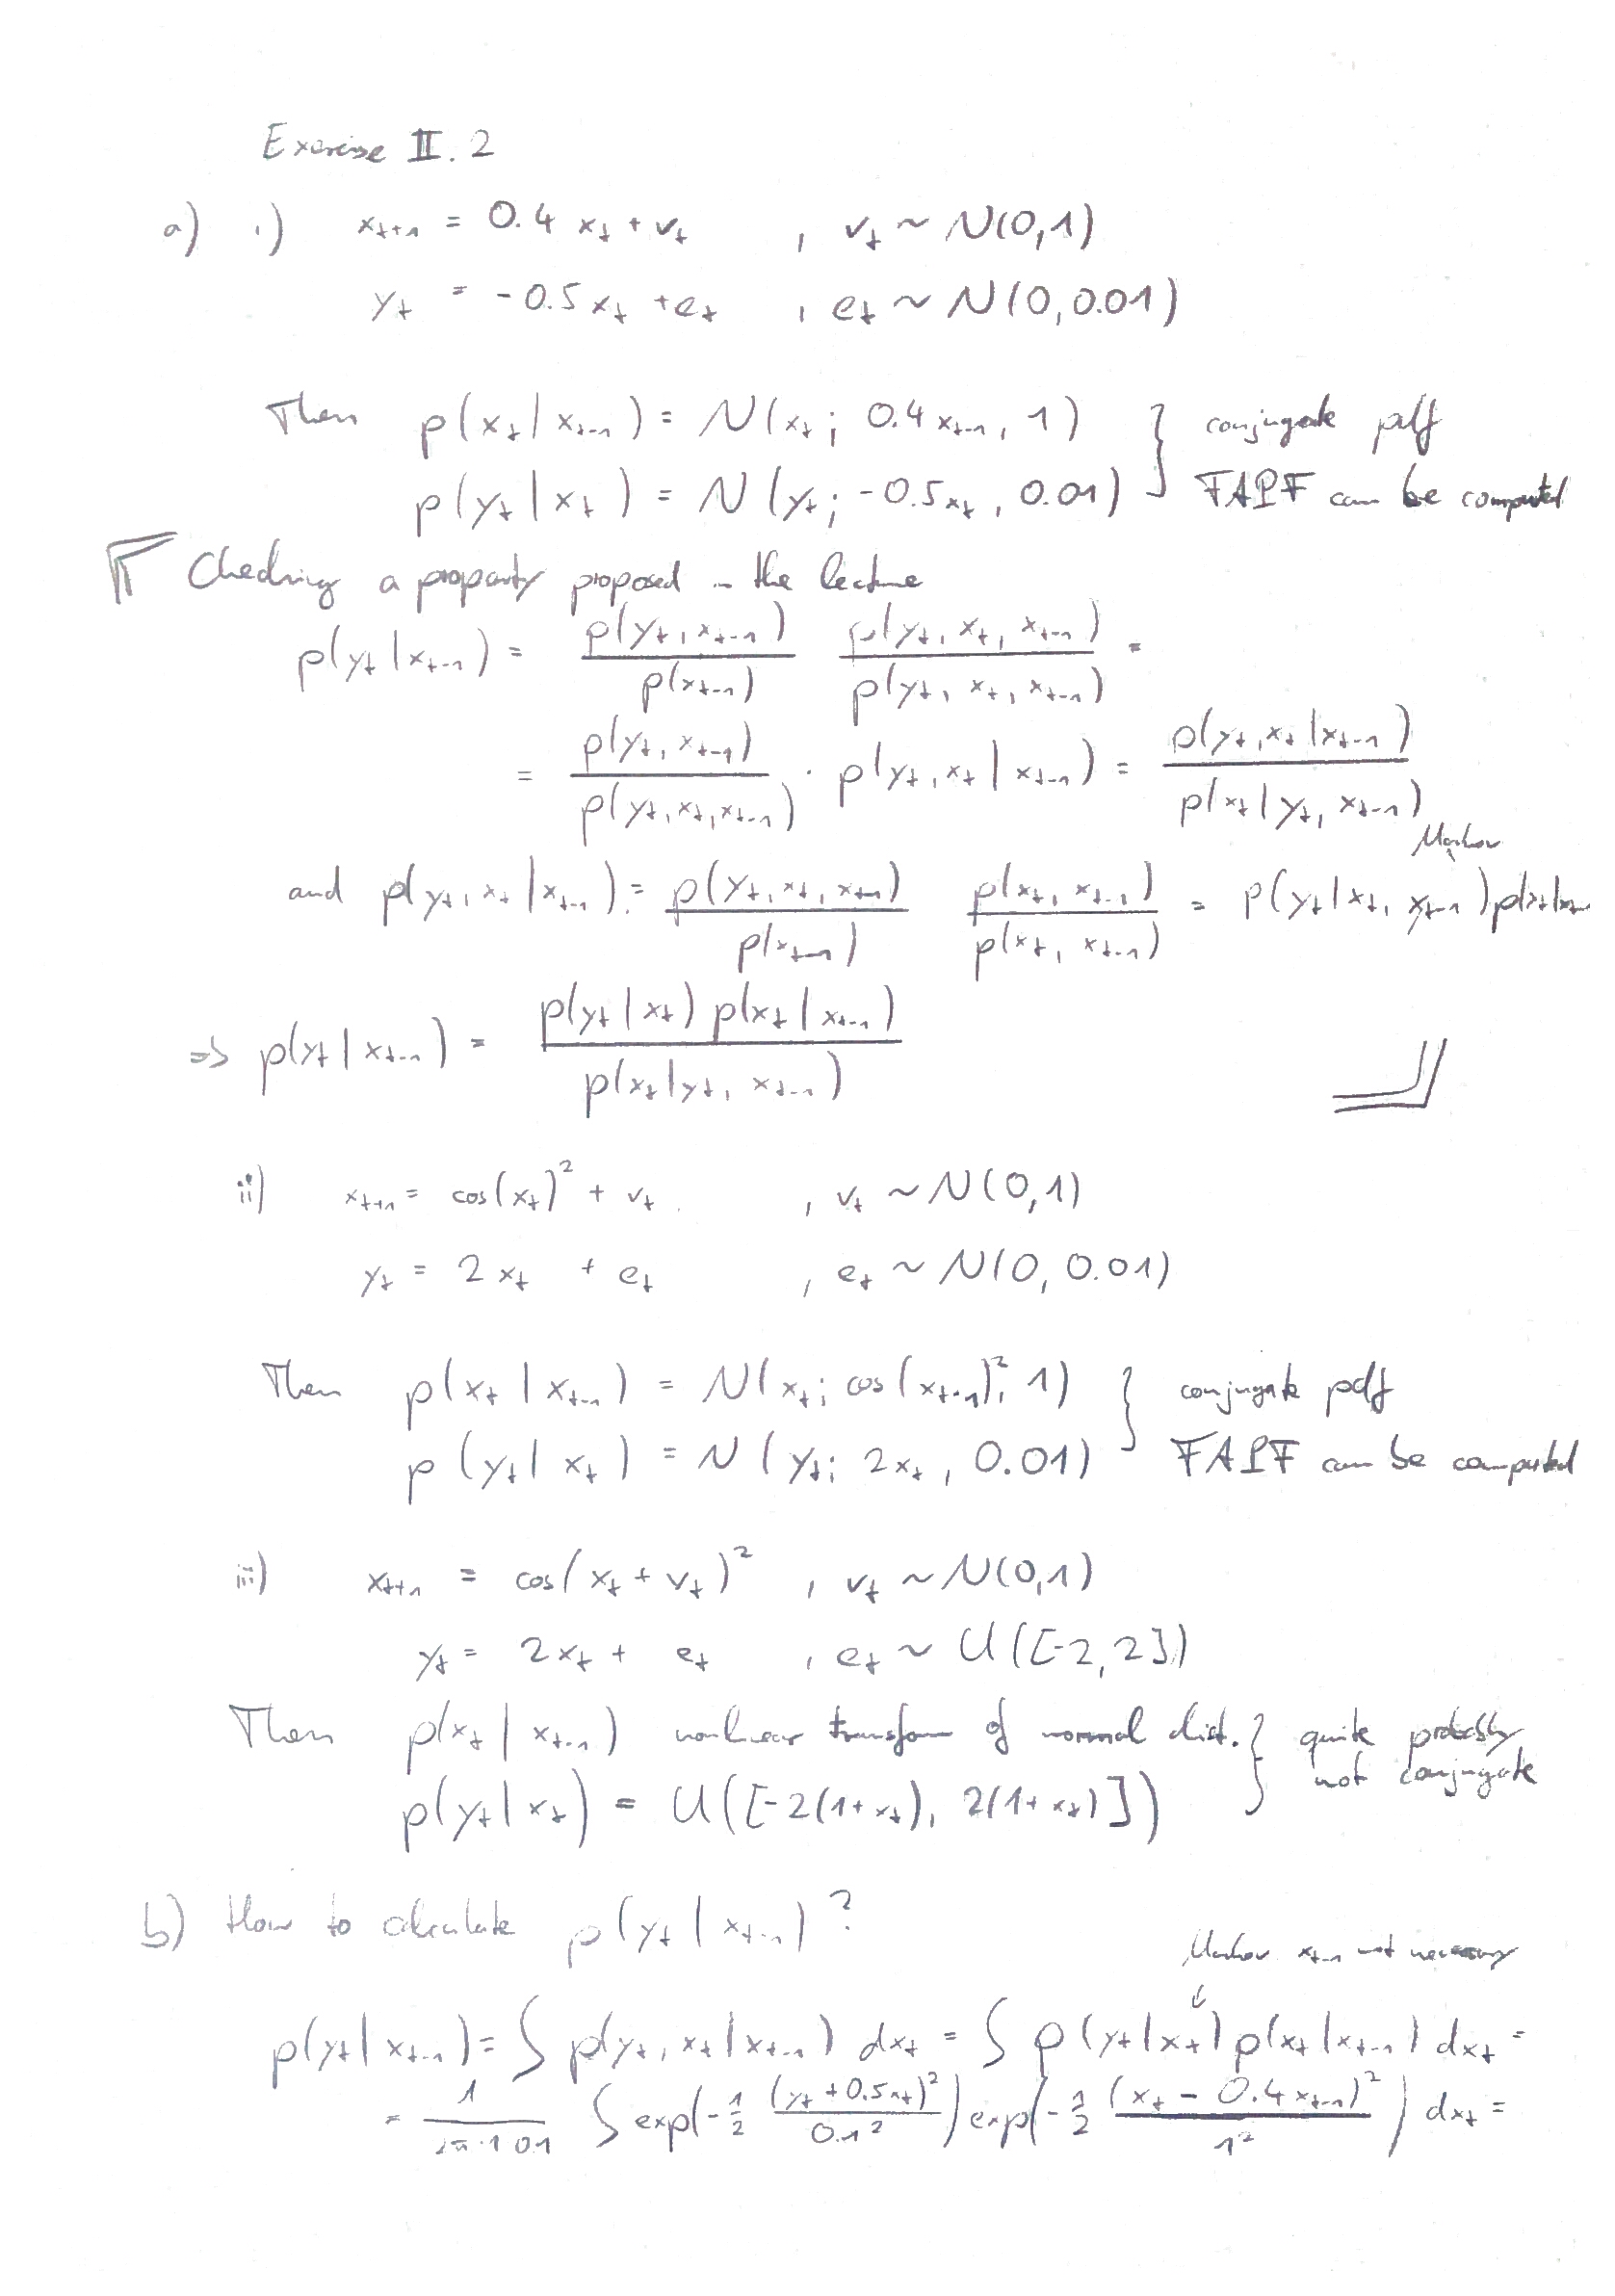 Exercise II.2
a) i) x_{t+1} = 0.4 x_t + v_t , v_t ~ N(0,1)
y_t = -0.5 x_t + e_t , e_t ~ N(0, 0.01)
Then p(x_t | x_{t-1}) = N(x_t; 0.4 x_{t-1}, 1) } conjugate pdf
p(y_t | x_t) = N(y_t; -0.5 x_t, 0.01) FAPF can be computed
Checking a property proposed in the lecture
p(y_t | x_{t-1}) = \frac{p(y_t, x_{t-1})}{p(x_{t-1})} \frac{p(y_t, x_t, x_{t-1})}{p(y_t, x_t, x_{t-1})} =
= \frac{p(y_t, x_{t-1})}{p(y_t, x_t, x_{t-1})} · p(y_t, x_t | x_{t-1}) = \frac{p(y_t, x_t | x_{t-1})}{p(x_t | y_t, x_{t-1})}
Markov
and p(y_t, x_t | x_{t-1}) = \frac{p(y_t, x_t, x_{t-1})}{p(x_{t-1})} \frac{p(x_t, x_{t-1})}{p(x_t, x_{t-1})} = p(y_t | x_t, x_{t-1}) p(x_t | x_{t-1}
=> p(y_t | x_{t-1}) = \frac{p(y_t | x_t) p(x_t | x_{t-1})}{p(x_t | y_t, x_{t-1})}
ii) x_{t+1} = cos(x_t)^2 + v_t , v_t ~ N(0,1)
y_t = 2 x_t + e_t , e_t ~ N(0, 0.01)
Then p(x_t | x_{t-1}) = N(x_t; cos(x_{t-1})^2, 1) } conjugate pdf
p(y_t | x_t) = N(y_t; 2x_t, 0.01) FAPF can be computed
iii) x_{t+1} = cos(x_t + v_t)^2 , v_t ~ N(0,1)
y_t = 2x_t + e_t , e_t ~ U([-2,2])
Then p(x_t | x_{t-1}) nonlinear transform of normal dist. } quite probably
not conjugate
p(y_t | x_t) = U([-2(1+x_t), 2(1+x_t)])
b) How to calculate p(y_t | x_{t-1}) ?
Markov x_{t-1} not necessary
p(y_t | x_{t-1}) = ∫ p(y_t, x_t | x_{t-1}) dx_t = ∫ p(y_t | x_t) p(x_t | x_{t-1}) dx_t =
= \frac{1}{2π·1 0.1} ∫ exp(-\frac{1}{2} \frac{(y_t + 0.5x_t)^2}{0.1^2}) exp(-\frac{1}{2} \frac{(x_t - 0.4x_{t-1})^2}{1^2}) dx_t =